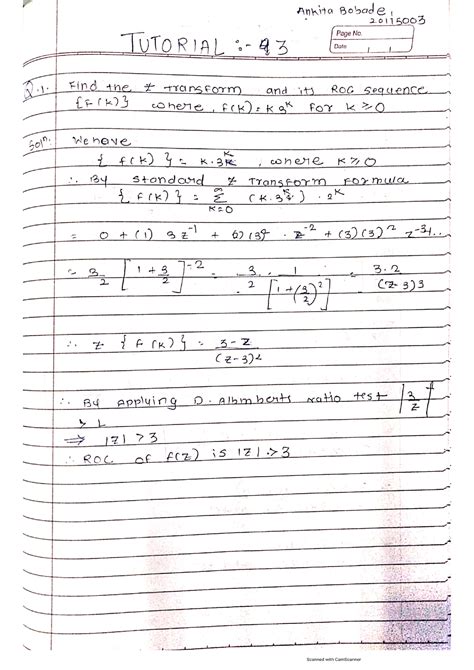 Ankita Bobade
20115003
Page No.
Date
TUTORIAL :- 3
Q.1. Find the z transform and its ROC sequence
{f(k)} where, f(k) = k 3^k for k ≥ 0
Soln. We have
{ f(k) } = k.3^k , where k ≥ 0
∴ By standard z Transform Formula
{ f(k) } = ∞ Σ k=0 (k.3^k) . z^k
= 0 + (1) 3z^-1 + (3)² . z^-2 + (3)(3)² z^-3+..
= 3/2 [ 1 + 3/2 ]^-2 = 3/2 . 1/[1+(3/2)²] = 3.2/(z-3)3
∴ z { f(k) } = 3-z/(z-3)2
∴ By applying D. Albmberts ratio test |3/z|
> 1
⇒ |z| > 3
∴ ROC of f(z) is |z| > 3
Scanned with CamScanner